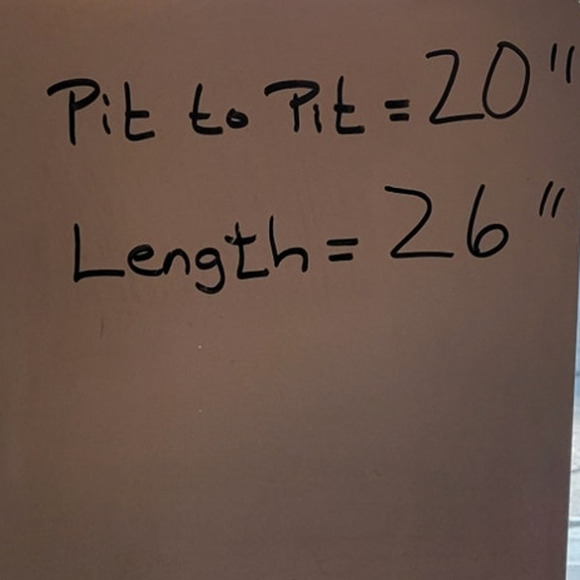 Pit to Pit = 20"
Length = 26"